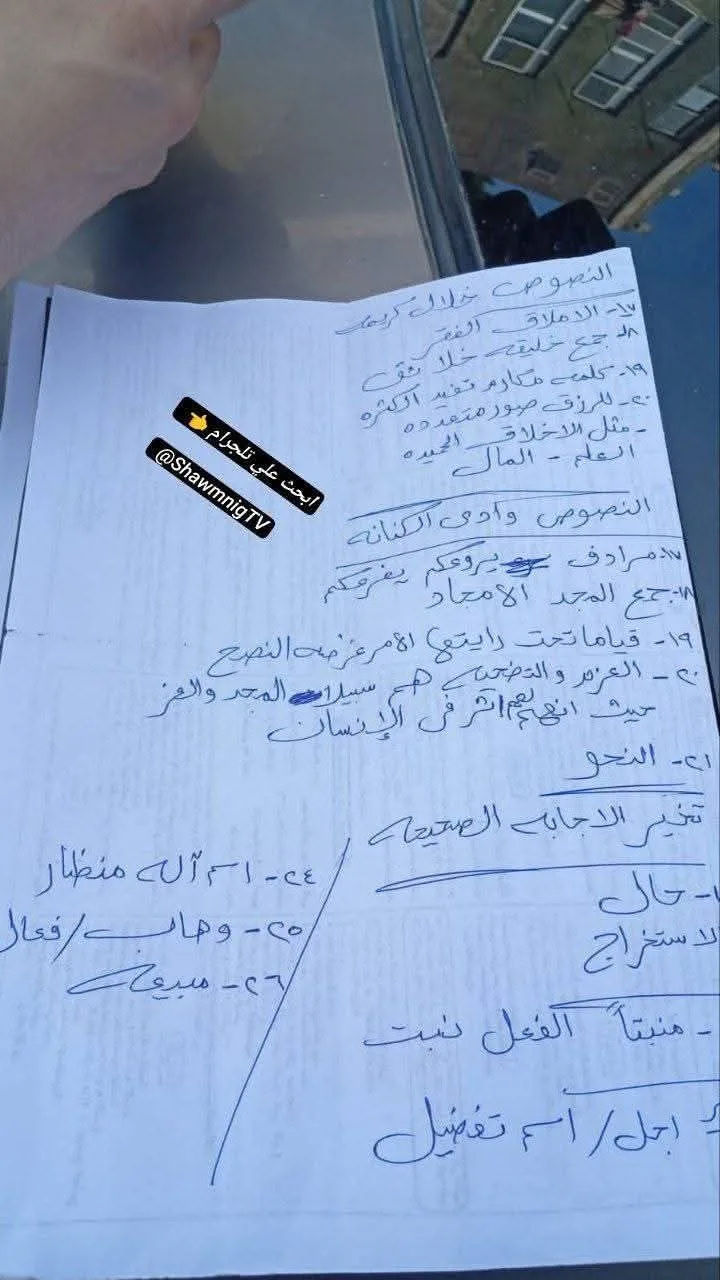 النصوص خلال كريمه
١٧- الاملاق الفقر
١٨- جمع خليقه خلائق
١٩- كلمه مكارم تفيد الكثره
٢٠- للرزق صور متعدده
- مثل الاخلاق الحميده
العلم - المال
ابحث علي تلجرام 👈
@ShawmnigTV
النصوص وادى الكنانه
١٧- مرادف يروعكم يفزعكم
١٨- جمع المجد الامجاد
١٩- قياما تحت رايتها الامر غرضه النصح
٢٠- العزم والتضحيه هم سبيلا المجد والعز
حيث انهم لهم اثر فى الإنسان
٢١- النحو
تخير الاجابه الصحيحه
- حال
الاستخراج
- منبتاً الفعل نبت
اجل / اسم تفضيل
٢٤- اسم آله منظار
٢٥- وهاب / فعال
٢٦- مبيعه